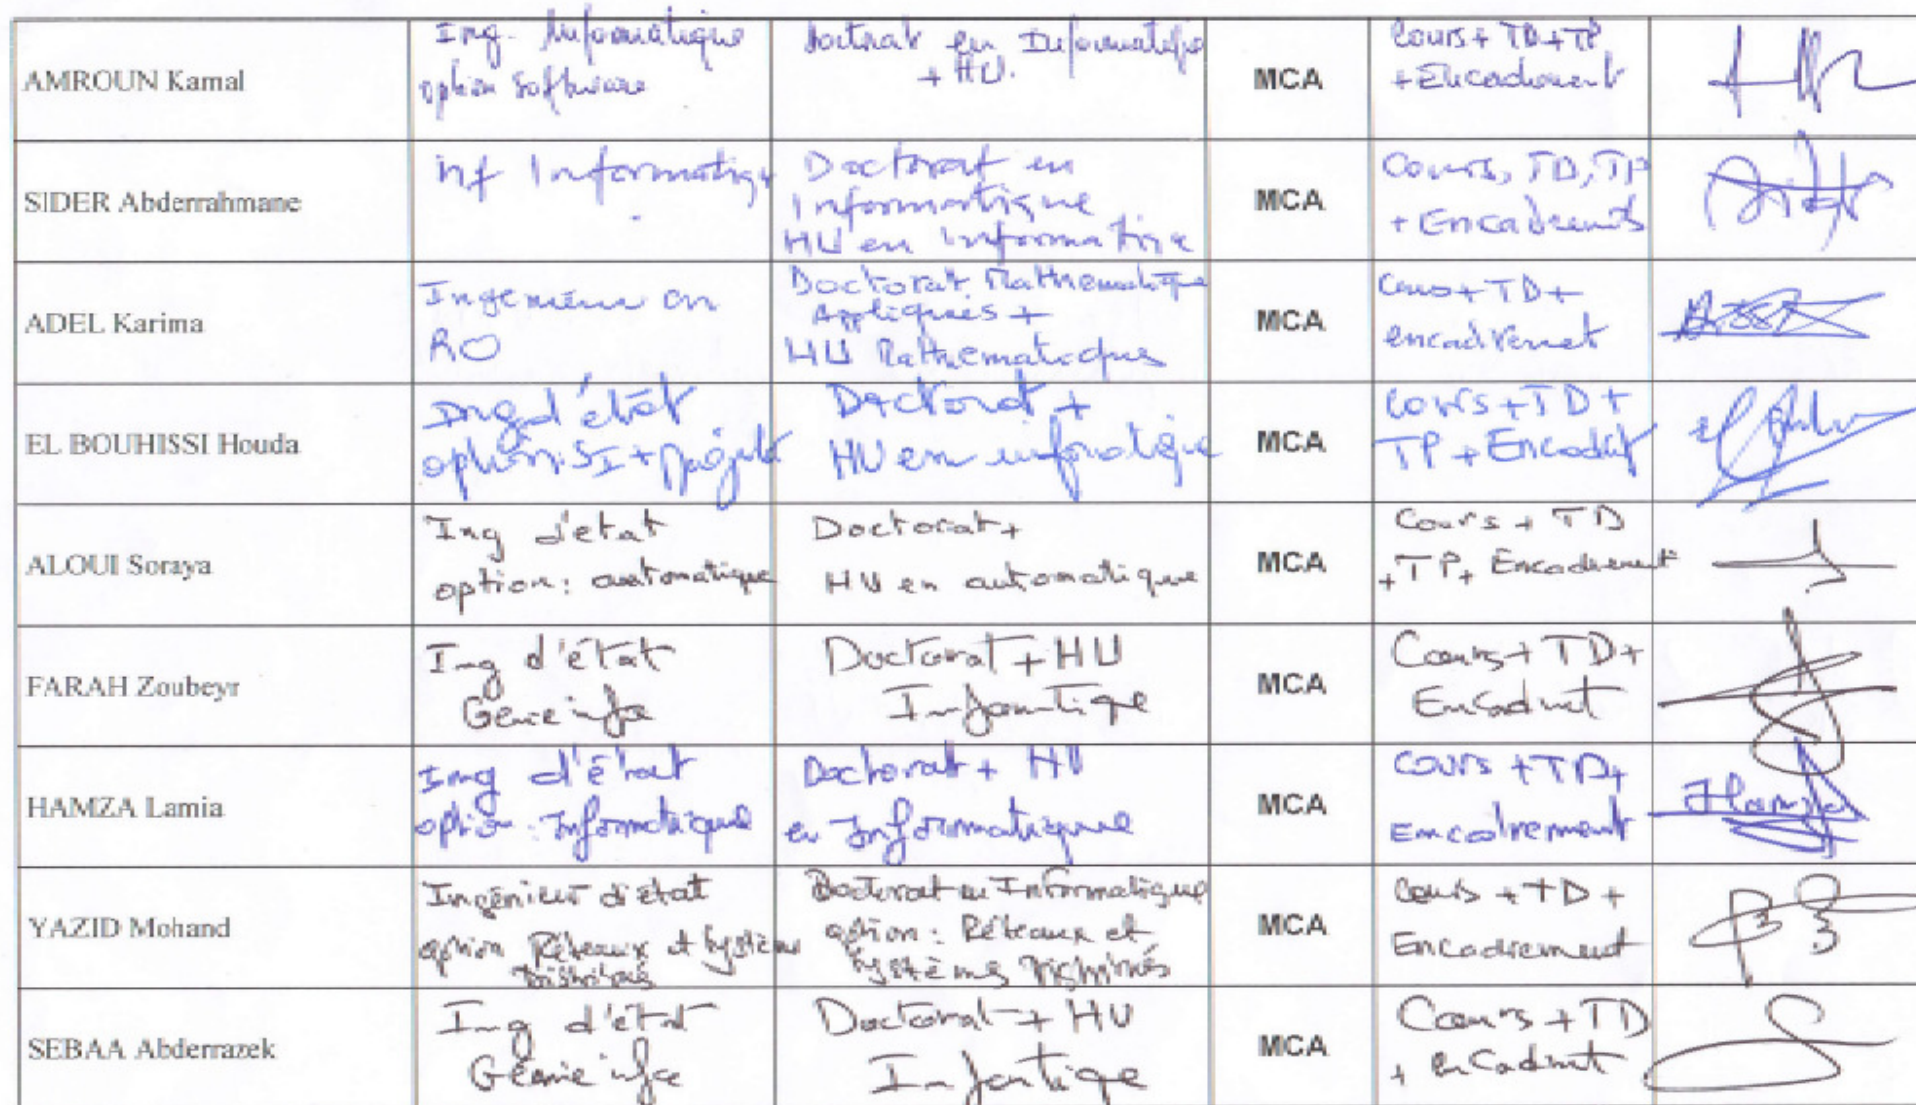 AMROUN Kamal
Ing. Informatique
option Software
Doctorat en Informatique
+ HU.
MCA
Cours + TD + TP
+ Encadrement
SIDER Abderrahmane
Informatique
Doctorat en
Informatique
HU en informatique
MCA
Cours, TD, TP
+ Encadrements
ADEL Karima
Ingenieur en
RO
Doctorat Mathematique
Appliquées +
HU Mathematiques
MCA
Cours + TD +
encadrement
EL BOUHISSI Houda
Ing d'état
option SI +
Doctorat +
HU en informatique
MCA
Cours + TD +
TP + Encadrt
ALOUI Soraya
Ing d'etat
option: automatique
Doctorat +
HU en automatique
MCA
Cours + TD
+ TP + Encadrement
FARAH Zoubeyr
Ing d'état
Génie info
Doctorat + HU
Informatique
MCA
Cours + TD +
Encadrement
HAMZA Lamia
Ing d'état
option : Informatique
Doctorat + HU
en Informatique
MCA
Cours + TD +
Encadrement
Hamza
YAZID Mohand
Ingénieur d'état
option Réseaux et Système
Distribués
Doctorat en Informatique
option : Réseaux et
Systèmes Distribués
MCA
Cours + TD +
Encadrement
SEBAA Abderrazek
Ing d'état
Génie info
Doctorat + HU
Informatique
MCA
Cours + TD
+ encadrement